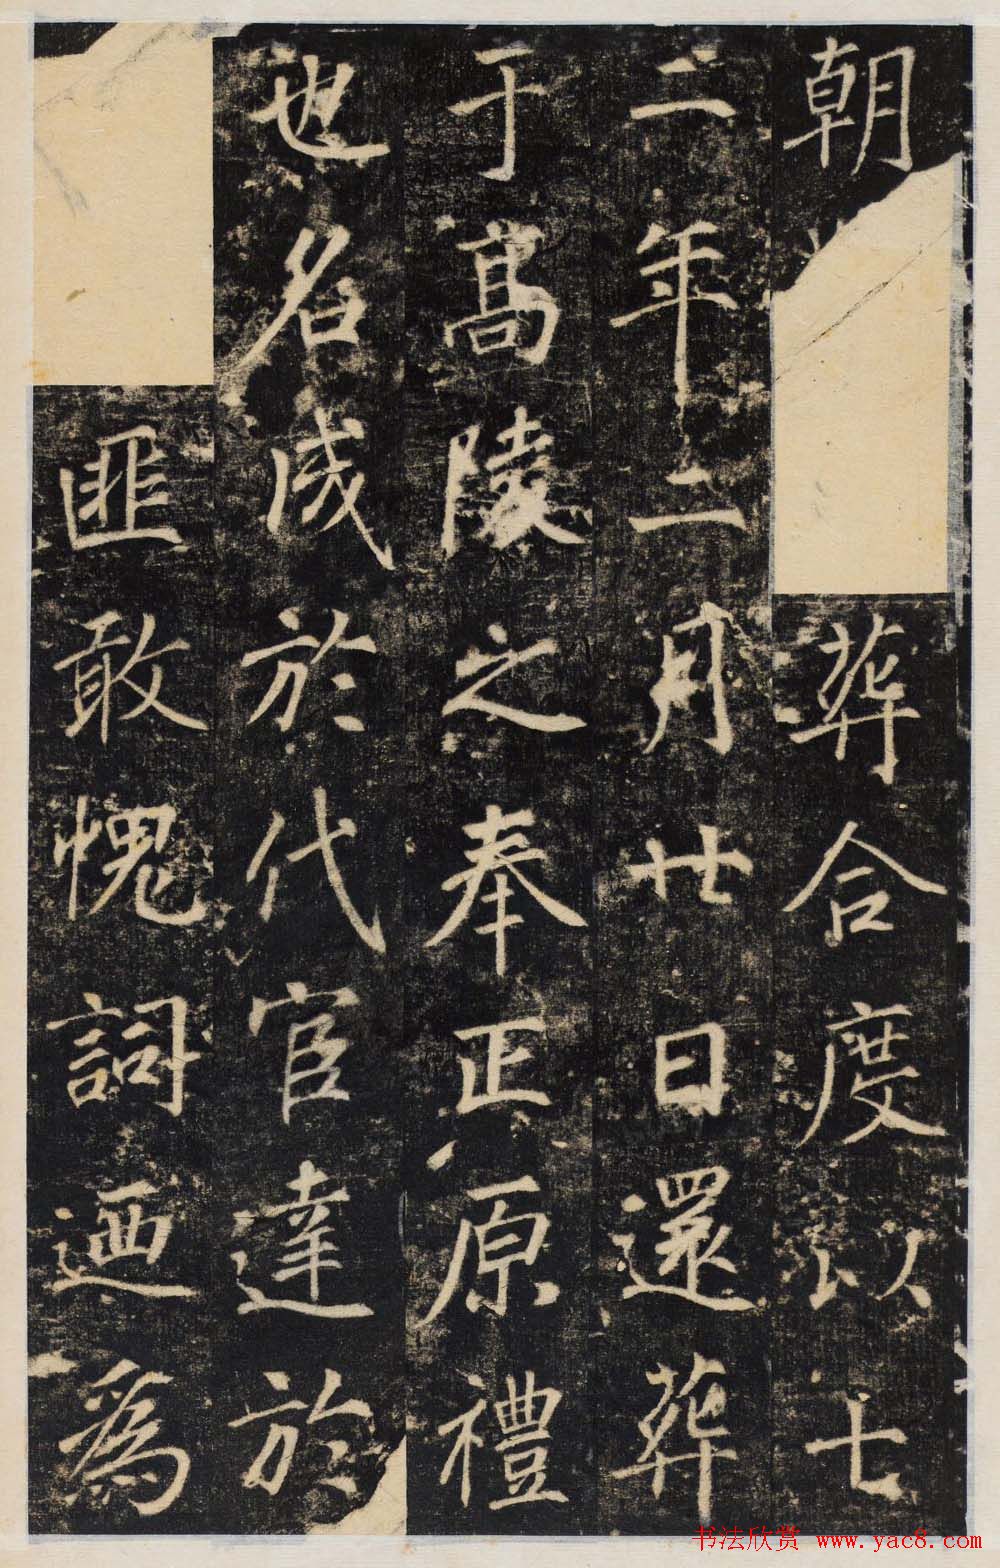 朝葬合度以七
二年二月廿日還葬
于高陵之奉正原禮
也名成於代官達於
匪敢愧詞迺爲
书法欣赏 www.yac8.com